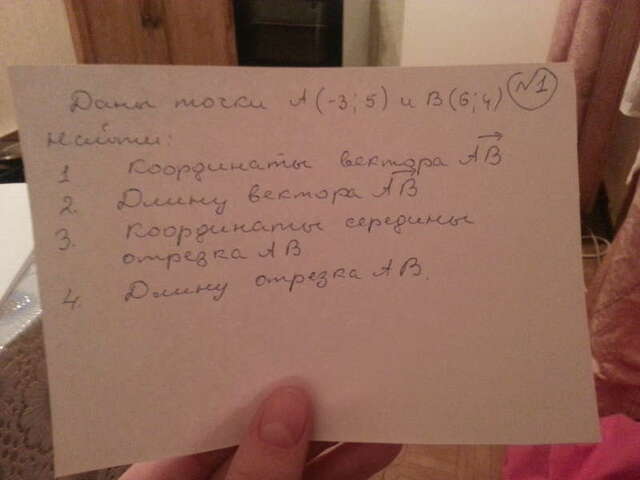 Даны точки A(-3; 5) и B(6; 4) №1
Найти:
1 Координаты вектора AB
2. Длину вектора AB
3. Координаты середины
отрезка AB
4. Длину отрезка AB.